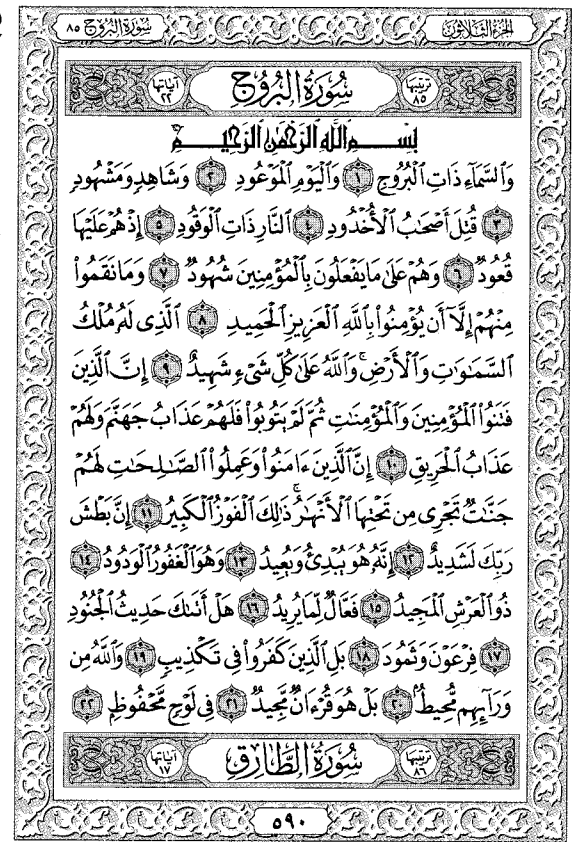 سُورَةُ البُرُوجِ ٨٥ الجُزْءُ الثَّلَاثُونَ
تَرْتِيبُهَا ٨٥ سُورَةُ البُرُوجِ آيَاتُهَا ٢٢
بِسْمِ ٱللَّهِ ٱلرَّحْمَٰنِ ٱلرَّحِيمِ
وَٱلسَّمَآءِ ذَاتِ ٱلْبُرُوجِ ١ وَٱلْيَوْمِ ٱلْمَوْعُودِ ٢ وَشَاهِدٍ وَمَشْهُودٍ
٣ قُتِلَ أَصْحَٰبُ ٱلْأُخْدُودِ ٤ ٱلنَّارِ ذَاتِ ٱلْوَقُودِ ٥ إِذْ هُمْ عَلَيْهَا
قُعُودٌ ٦ وَهُمْ عَلَىٰ مَا يَفْعَلُونَ بِٱلْمُؤْمِنِينَ شُهُودٌ ٧ وَمَا نَقَمُوا۟
مِنْهُمْ إِلَّآ أَن يُؤْمِنُوا۟ بِٱللَّهِ ٱلْعَزِيزِ ٱلْحَمِيدِ ٨ ٱلَّذِى لَهُۥ مُلْكُ
ٱلسَّمَٰوَٰتِ وَٱلْأَرْضِ ۚ وَٱللَّهُ عَلَىٰ كُلِّ شَىْءٍ شَهِيدٌ ٩ إِنَّ ٱلَّذِينَ
فَتَنُوا۟ ٱلْمُؤْمِنِينَ وَٱلْمُؤْمِنَٰتِ ثُمَّ لَمْ يَتُوبُوا۟ فَلَهُمْ عَذَابُ جَهَنَّمَ وَلَهُمْ
عَذَابُ ٱلْحَرِيقِ ١٠ إِنَّ ٱلَّذِينَ ءَامَنُوا۟ وَعَمِلُوا۟ ٱلصَّٰلِحَٰتِ لَهُمْ
جَنَّٰتٌ تَجْرِى مِن تَحْتِهَا ٱلْأَنْهَٰرُ ۚ ذَٰلِكَ ٱلْفَوْزُ ٱلْكَبِيرُ ١١ إِنَّ بَطْشَ
رَبِّكَ لَشَدِيدٌ ١٢ إِنَّهُۥ هُوَ يُبْدِئُ وَيُعِيدُ ١٣ وَهُوَ ٱلْغَفُورُ ٱلْوَدُودُ ١٤
ذُو ٱلْعَرْشِ ٱلْمَجِيدُ ١٥ فَعَّالٌ لِّمَا يُرِيدُ ١٦ هَلْ أَتَىٰكَ حَدِيثُ ٱلْجُنُودِ
١٧ فِرْعَوْنَ وَثَمُودَ ١٨ بَلِ ٱلَّذِينَ كَفَرُوا۟ فِى تَكْذِيبٍ ١٩ وَٱللَّهُ مِن
وَرَآئِهِم مُّحِيطٌۢ ٢٠ بَلْ هُوَ قُرْءَانٌ مَّجِيدٌ ٢١ فِى لَوْحٍ مَّحْفُوظٍۭ ٢٢
تَرْتِيبُهَا ٨٦ سُورَةُ الطَّارِقِ آيَاتُهَا ١٧
٥٩٠